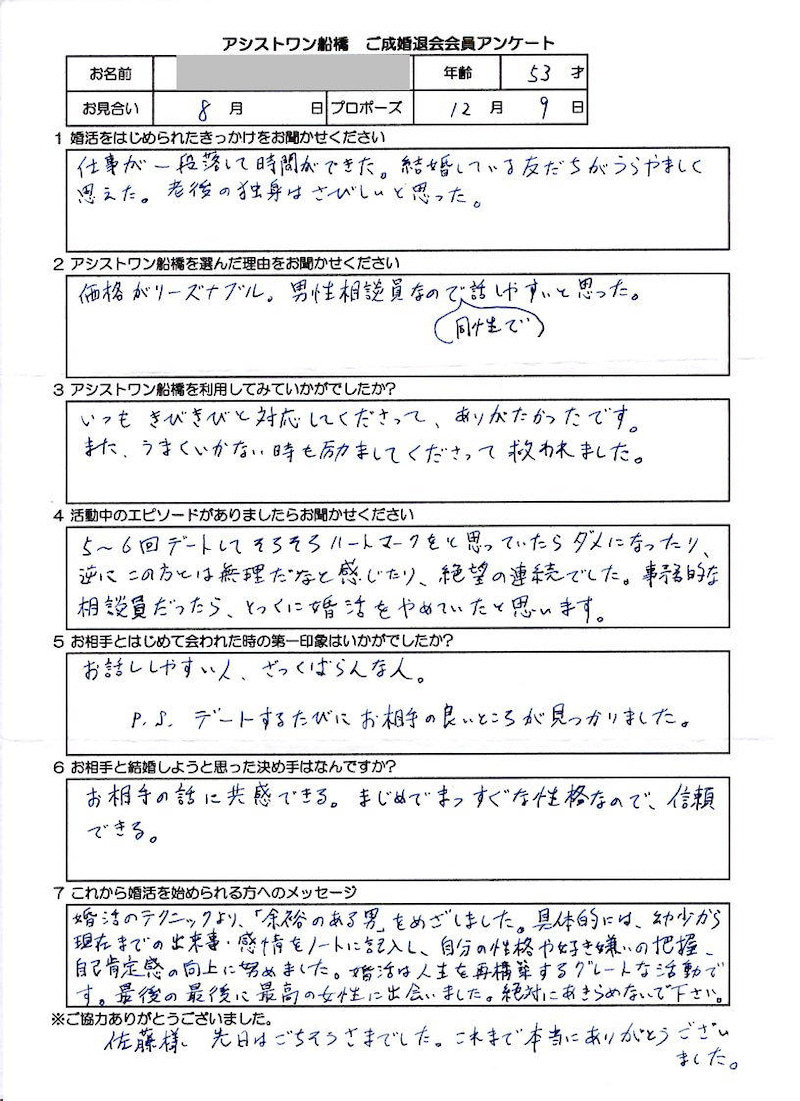 アシストワン船橋 ご成婚退会会員アンケート
お名前 年齢 53 才
お見合い 8 月 日 プロポーズ 12 月 9 日
1 婚活をはじめられたきっかけをお聞かせください
仕事が一段落して時間ができた。結婚している友だちがうらやましく
思えた。老後の独身はさびしいと思った。
2 アシストワン船橋を選んだ理由をお聞かせください
価格がリーズナブル。男性相談員なので話しやすいと思った。
(同性で)
3 アシストワン船橋を利用してみていかがでしたか?
いつもきびきびと対応してくださって、ありがたかったです。
また、うまくいかない時も励ましてくださって救われました。
4 活動中のエピソードがありましたらお聞かせください
5〜6回デートしてそろそろハートマークをと思っていたらダメになったり、
逆にこの方とは無理だなと感じたり、絶望の連続でした。事務的な
相談員だったら、とっくに婚活をやめていたと思います。
5 お相手とはじめて会われた時の第一印象はいかがでしたか?
お話ししやすい人、ざっくばらんな人。
P.S. デートするたびにお相手の良いところが見つかりました。
6 お相手と結婚しようと思った決め手はなんですか?
お相手の話に共感できる。まじめでまっすぐな性格なので、信頼
できる。
7 これから婚活を始められる方へのメッセージ
婚活のテクニックより、「余裕のある男」をめざしました。具体的には、幼少から
現在までの出来事・感情をノートに記入し、自分の性格や好き嫌いの把握、
自己肯定感の向上に努めました。婚活は人生を再構築するグレートな活動で
す。最後の最後に最高の女性に出会いました。絶対にあきらめないで下さい。
※ご協力ありがとうございました。
佐藤様、先日はごちそうさまでした。これまで本当にありがとうござい
ました。